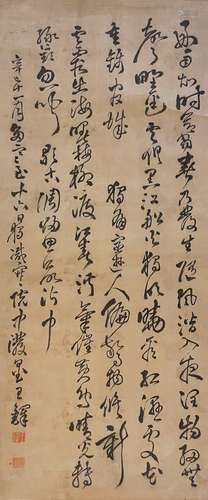 好雨知時節當春乃發生隨風潛入夜潤物細無
聲野徑雲俱黑江船火獨明曉看紅濕處花
重錦官城 獨有宦遊人偏驚物候新
雲霞出海曙梅柳渡江春淑氣催黃鳥晴光轉
綠蘋忽聞歌古調歸思欲沾巾
月 十六日 中 王鐸